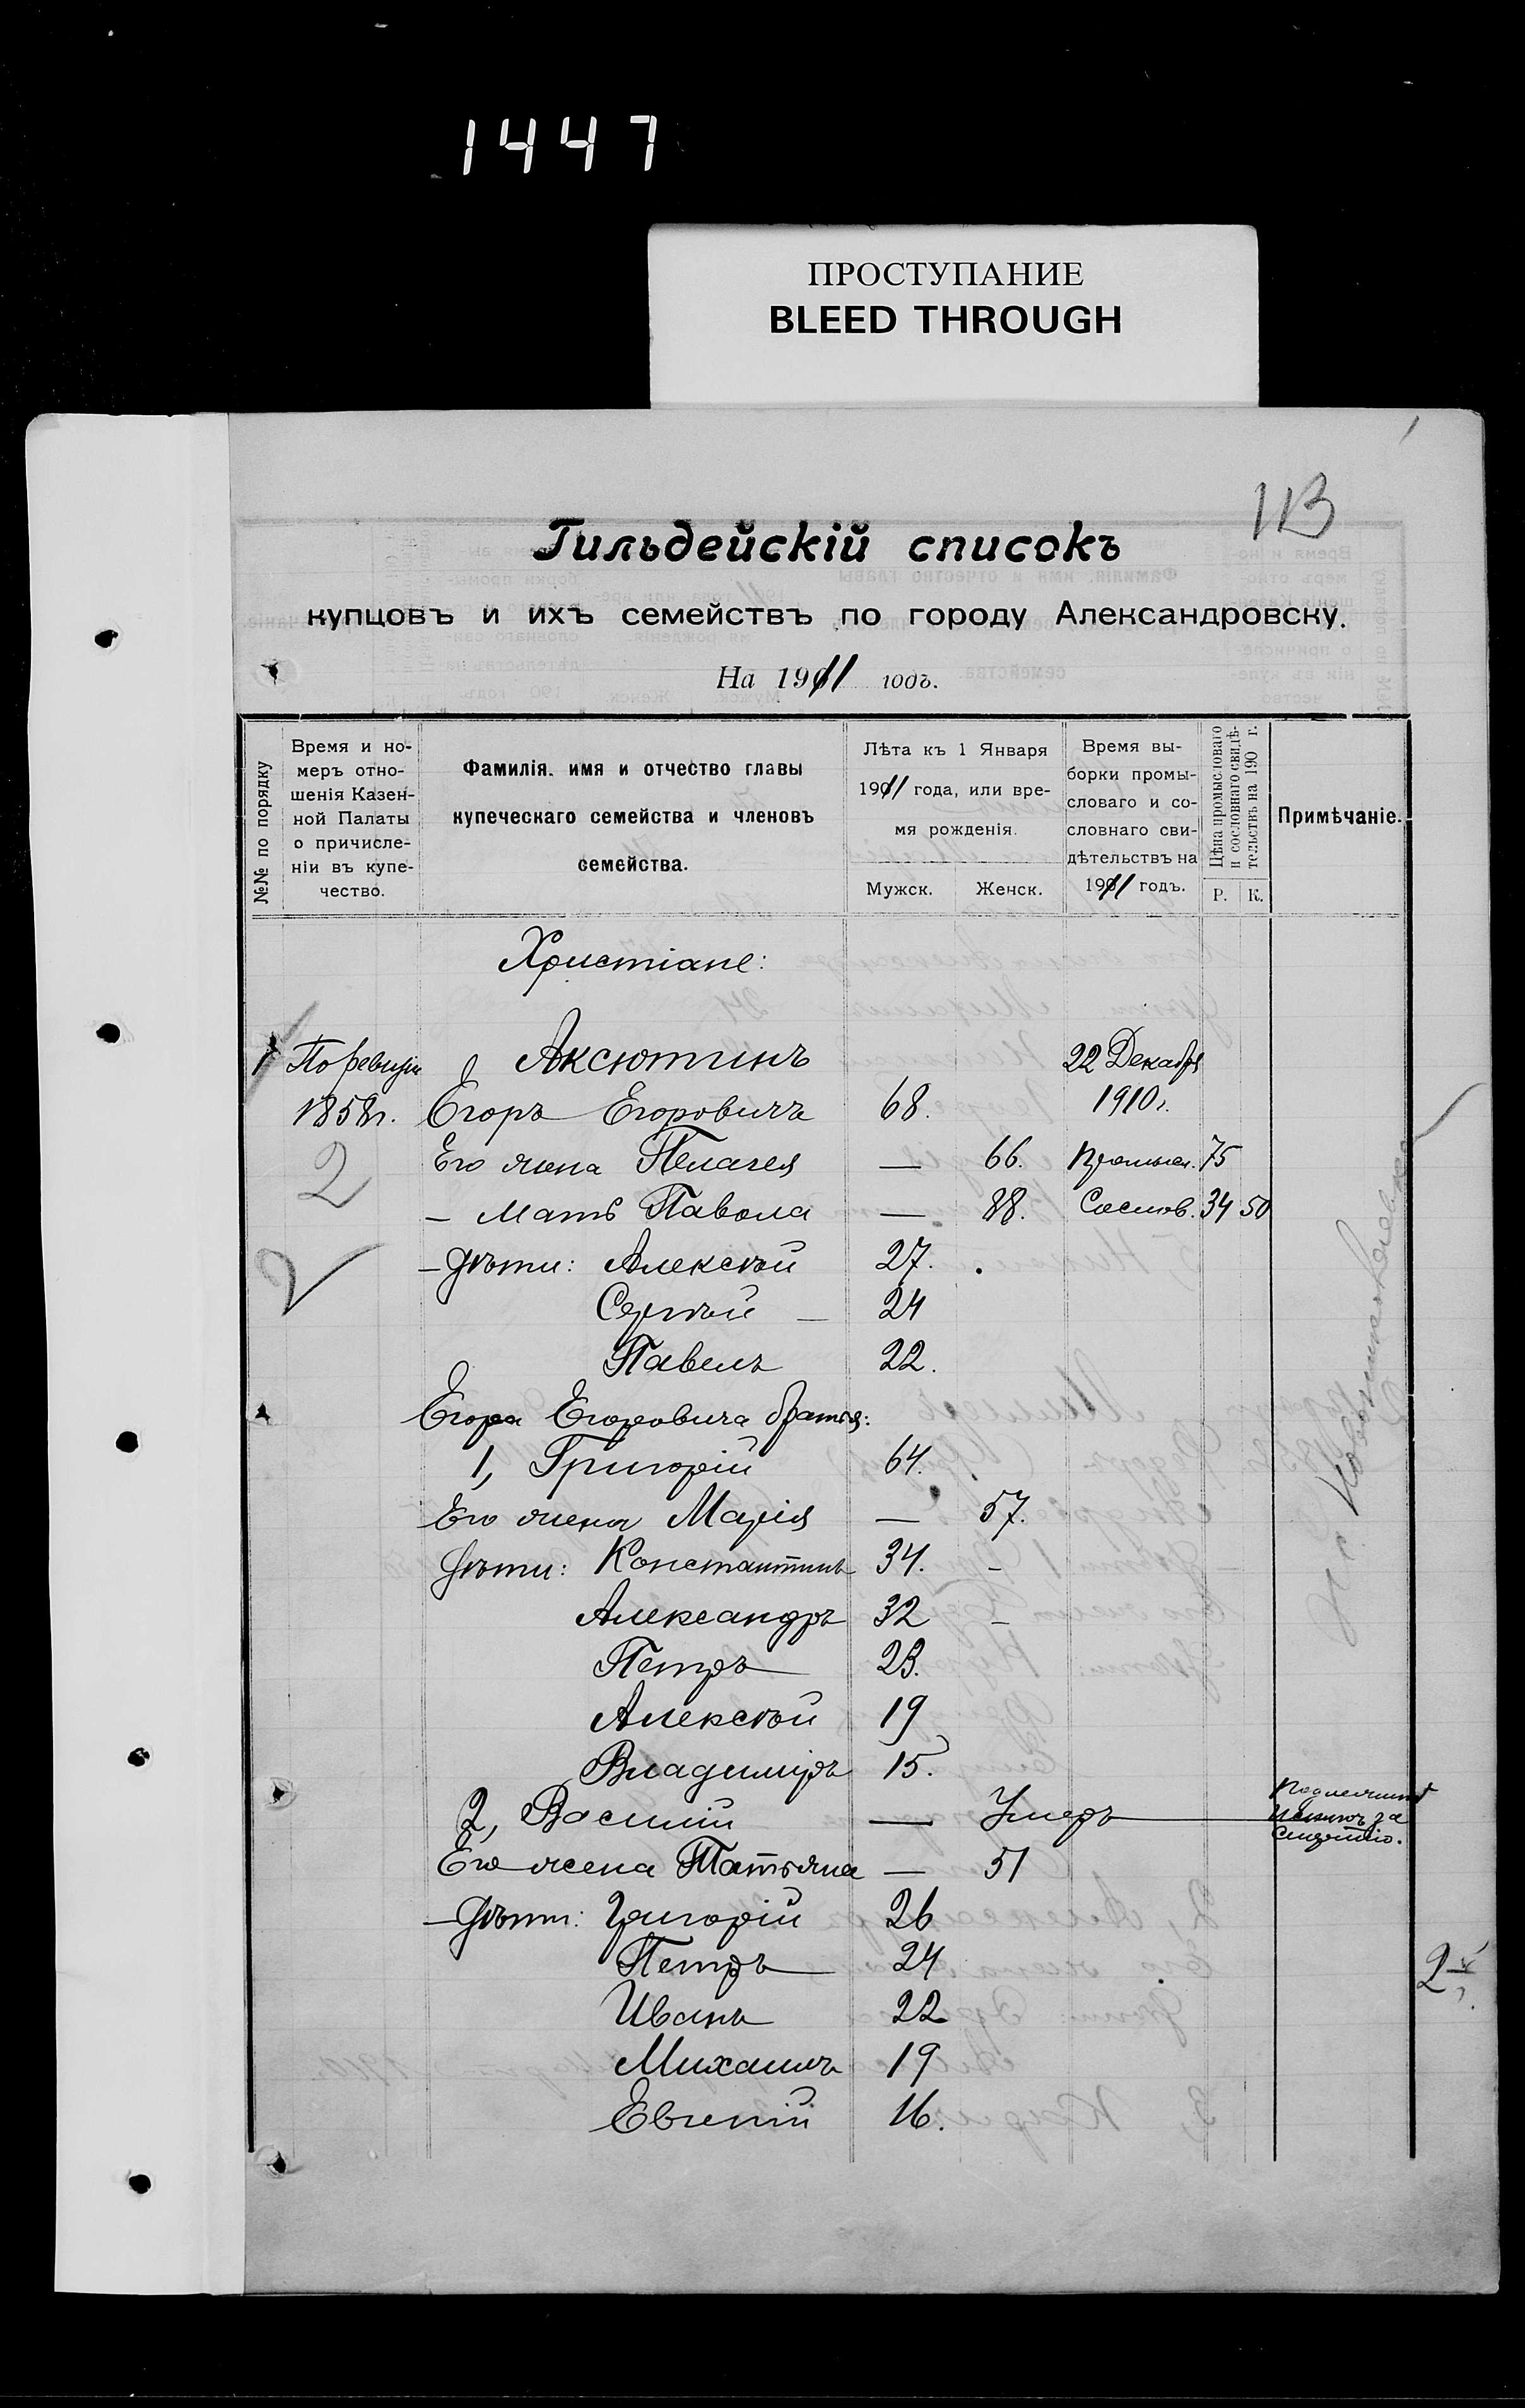 1447
ПРОСТУПАНИЕ
BLEED THROUGH
113
Гильдейскій списокъ
купцовъ и ихъ семействъ по городу Александровску.
На 1911 годъ.
№№ по порядку
Время и но-
меръ отно-
шенія Казен-
ной Палаты
о причисле-
ніи въ купе-
чество.
Фамилія. имя и отчество главы
купеческаго семейства и членовъ
семейства.
Лѣта къ 1 Января
1911 года, или вре-
мя рожденія.
Мужск. Женск.
Время вы-
борки промы-
словаго и со-
словнаго сви-
дѣтельствъ на
1911 годъ.
Цѣна промысловаго
и сословнаго свидѣ-
тельствъ на 190 г.
Р. К.
Примѣчаніе.
Христіане:
1 По ревизіи Аксютинъ 22 Декабря
1858 г. Егоръ Егоровичъ 68. 1910 г.
2 Его жена Пелагея — 66. Промысл. 75
— Мать Павола — 88. Сослов. 34 50
— Дѣти: Алексѣй 27.
Сергѣй — 24
Павелъ 22.
Егора Егоровича братья:
1, Григорій 64.
Его жена Марія — 57.
Дѣти: Константинъ 34. -
Александръ 32 -
Петръ 23.
Алексѣй 19
Владиміръ 15.
2, Василій — Умеръ
Его жена Татьяна — 51
— Дѣти: Григорій 26
Петръ 24
Иванъ 22
Михаилъ 19
Евгеній 16.